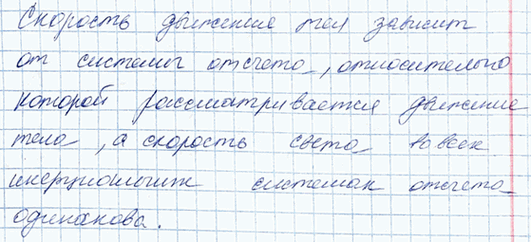 Скорость движения тел зависит
от системы отсчета, относительно
которой рассматривается движение
тела, а скорость света во всех
инерциальных системах отсчета
одинакова.